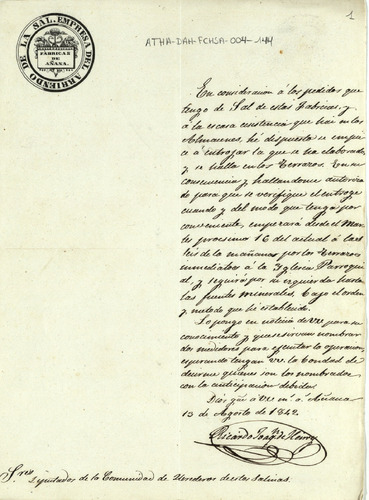 1
ATHA-DAH-FCHSA-004-144
EMPRESA DEL ARRIENDO DE LA SAL.
FÁBRICAS
DE
AÑANA.
En consideracion á los pedidos que
tengo de Sal de estas Fabricas, y
á la escasa ecsistencia que hai en los
Almacenes, hé dispuesto se empie
ce á entrojar la que se ha elaborado
y se halla en los Terrazos. En su
consecuencia y hallandome autoriza
do para que se verifique el entroge
cuando y del modo que tenga por
conveniente, empezará desde el Mar
tes procsimo 16 del actual á las
seis de la mañana por los Terrazos
inmediatos á la Yglesia Parroqui
al, y seguirá por su izquierda hasta
las fuentes minerales, bajo el orden
y metodo que hé establecido.
Lo pongo en noticia de VV para su
conocimiento y que se sirvan nombrar
dos medidores para ejecutar la operacion
esperando tengan VV. la bondad de
decirme quienes son los nombrados
con la anticipacion debida.
Dios gue á VV m.s a.s Añana
13 de Agosto de 1842.
Ricardo Joaq.n de
S.res Diputados de la Comunidad de Herederos de estas Salinas.